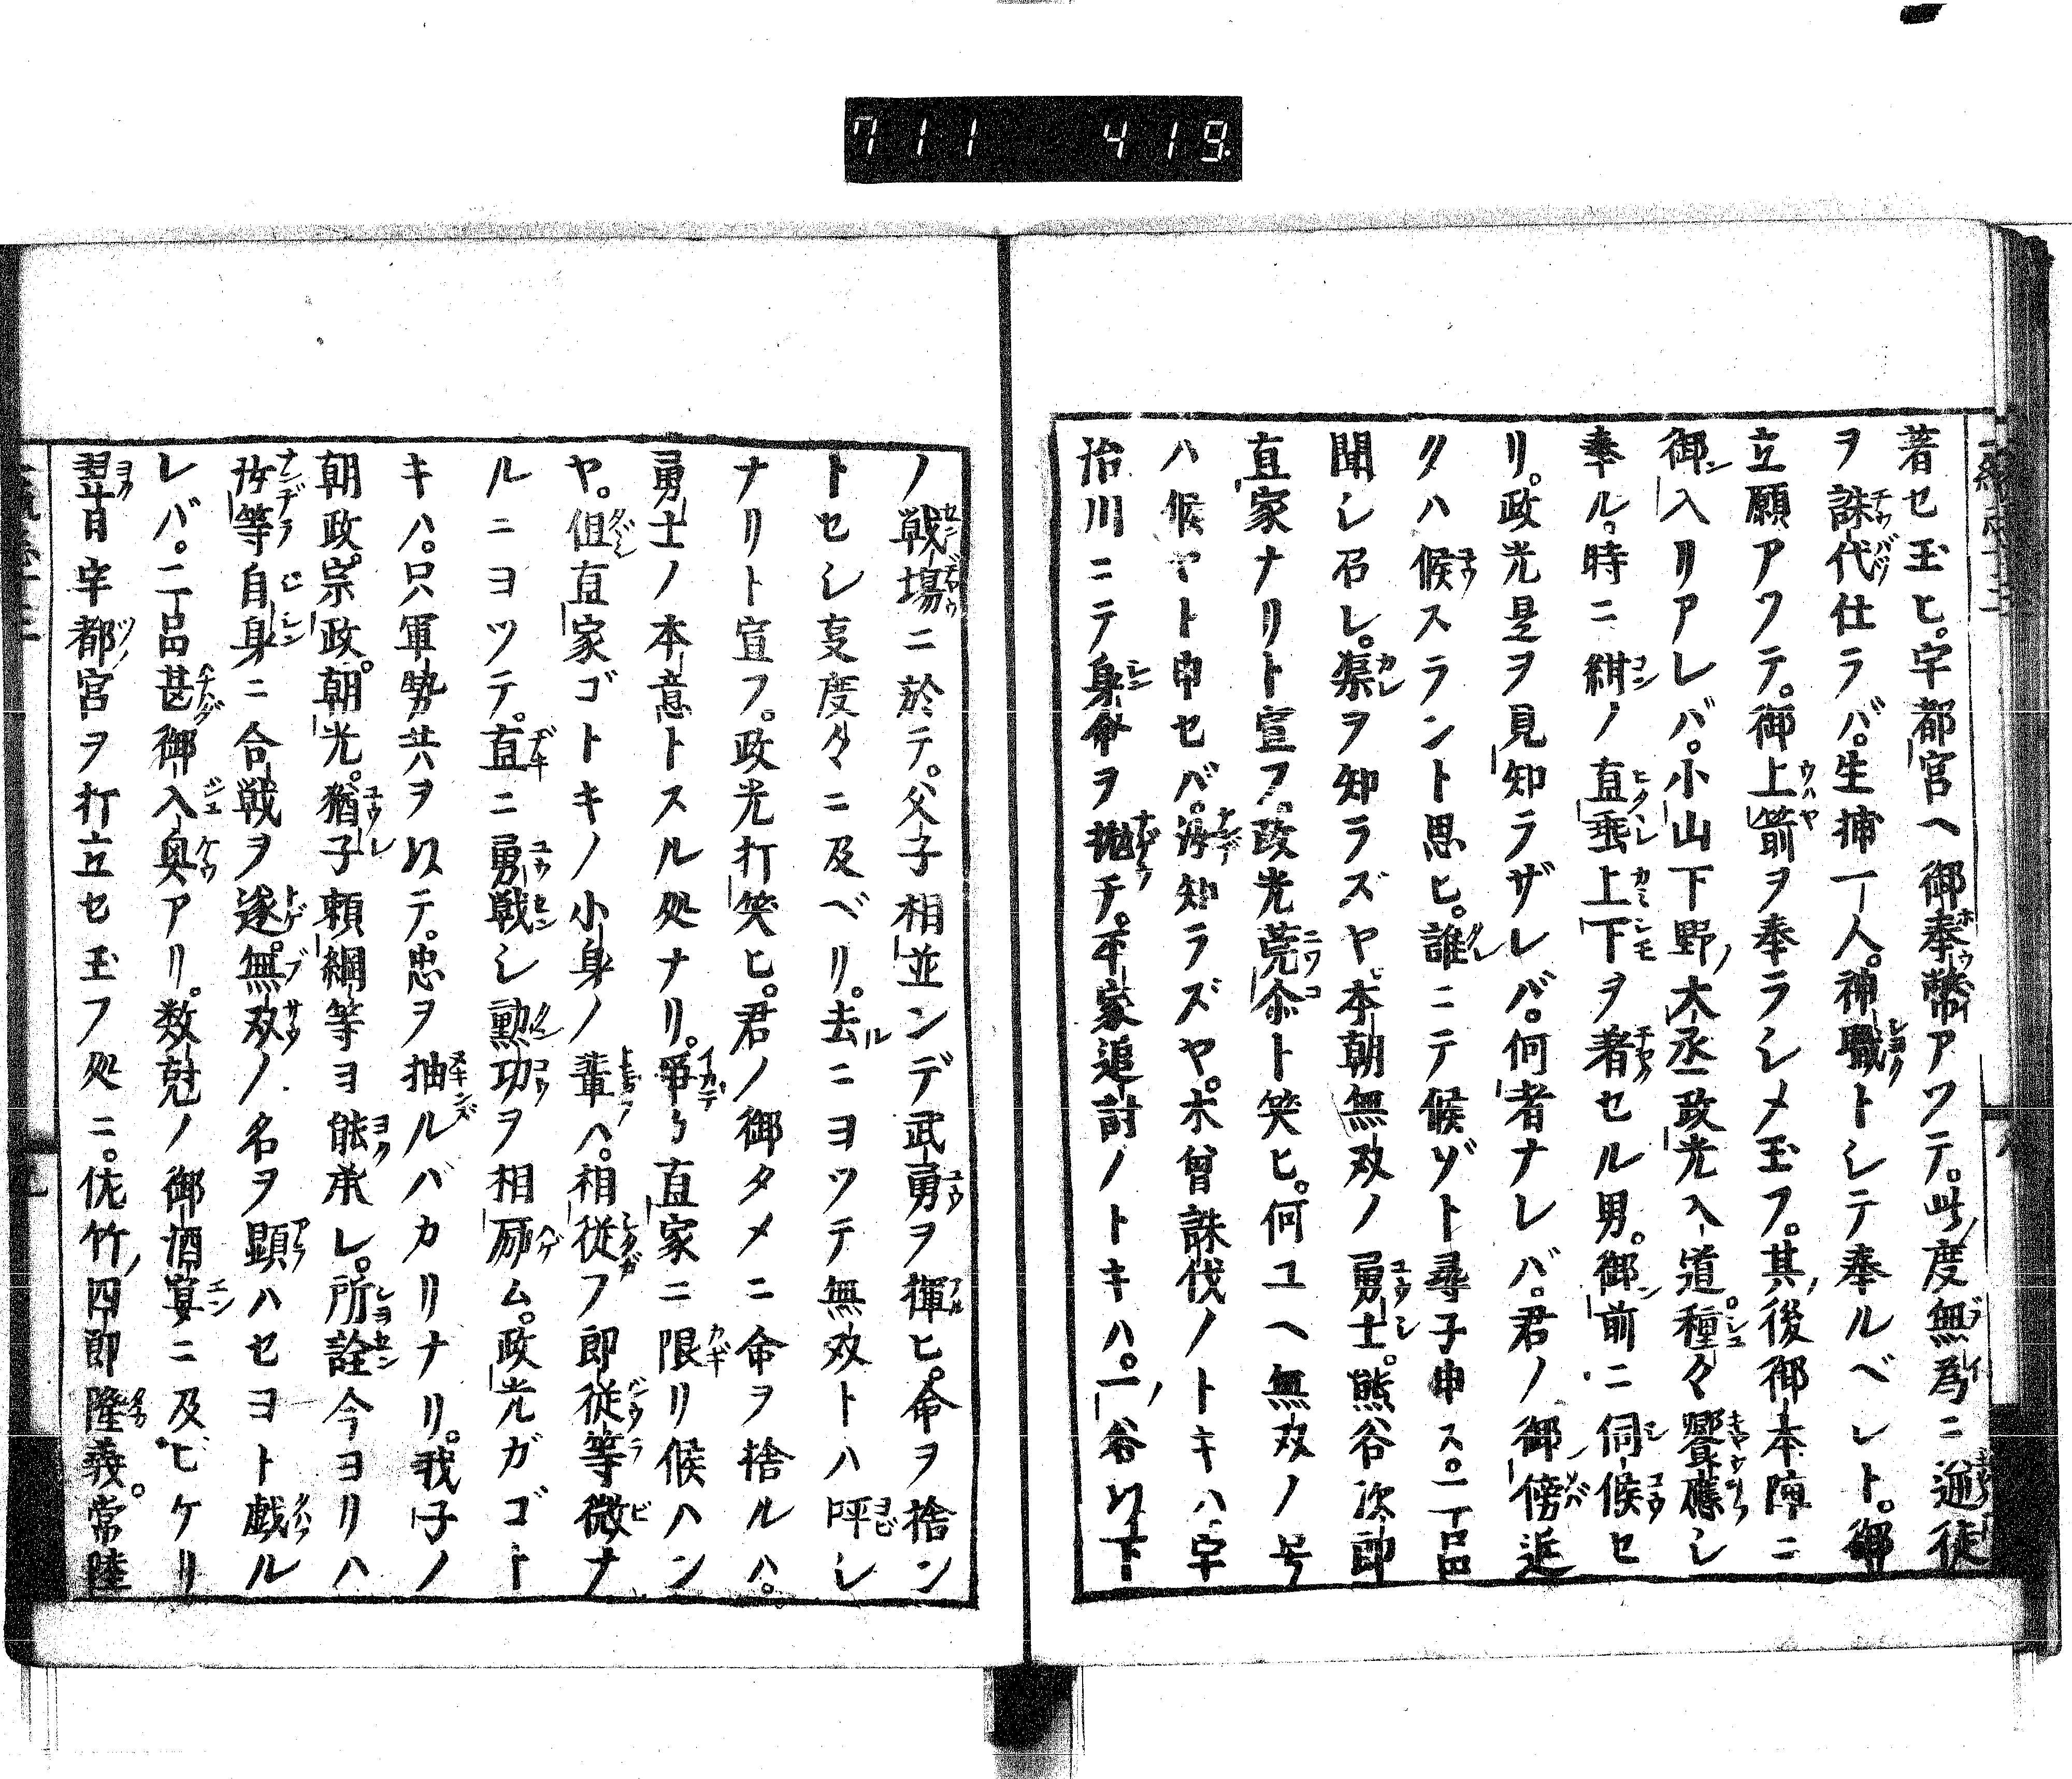 711 419
著セ玉ヒ。宇都宮ヘ御奉幣アツテ。此度無為ニ逆徒
ヲ誅代仕ラバ。生捕一人。神職トシテ奉ルベシト。御
立願アツテ。御上箭ヲ奉ラシメ玉フ。其後御本陣ニ
御入リアレバ。小山下野大丞政光入道種々饗應シ
奉ル。時ニ紺ノ直垂上下ヲ着セル男。御前ニ伺候セ
リ。政光是ヲ見知ラザレバ。何者ナレバ。君ノ御傍近
クハ候スラント思ヒ。誰ニテ候ゾト尋子申ス。二品
聞シ召レ。渠ヲ知ラズヤ本朝無双ノ勇士。熊谷次郎
直家ナリト宣フ。政光莞尓ト笑ヒ。何ユヘ無双ノ号
ハ候ヤト申セバ。汝知ラズヤ。木曾誅伐ノトキハ宇
治川ニテ身命ヲ抛チ。平家追討ノトキハ。一谷以下
ノ戦場ニ於テ。父子相並ンデ武勇ヲ揮ヒ。命ヲ捨ン
トセシ叓度々ニ及ベリ。去ニヨツテ無双トハ呼シ
ナリト宣フ。政光打笑ヒ。君ノ御タメニ命ヲ捨ルハ。
勇士ノ本意トスル処ナリ。争カ直家ニ限リ候ハン
ヤ。但直家ゴトキノ小身ノ輩ハ。相従フ郎従等微ナ
ルニヨツテ。直ニ勇戦シ勲功ヲ相励ム。政光ガゴト
キハ。只軍勢共ヲ以テ。忠ヲ抽ルバカリナリ。我子ノ
朝政。宗政。朝光。猶子頼綱等ヨ能承レ。所詮今ヨリハ
汝等自身ニ合戦ヲ遂。無双ノ名ヲ顕ハセヨト戯ル
レバ。二品甚御入奥アリ。数尅ノ御酒宴ニ及ビケリ
翌日宇都宮ヲ打立セ玉フ処ニ。佐竹四郎隆義。常陸